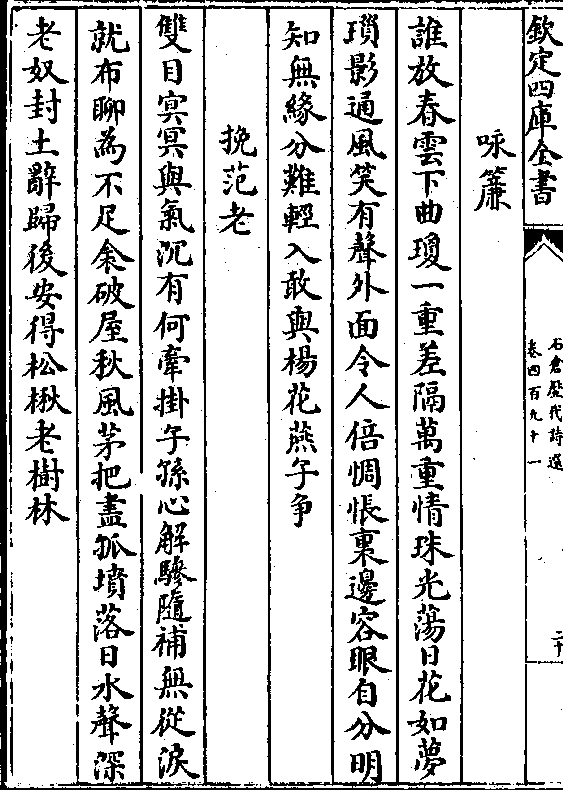 欽定四庫全書
石倉歷代詩選
卷四百九十一
二十
咏簾
誰放春雲下曲瓊一重差隔萬重情珠光蕩日花如夢
瑣影通風笑有聲外面令人倍惆悵裏邊容眼自分明
知無緣分難輕入敢與楊花燕子争
挽范老
雙目㝠冥與氣沉有何牽掛子孫心解驂隨補無從淚
就布聊為不足衾破屋秋風茅把盡孤墳落日水聲深
老奴封土辭歸後安得松楸老樹林